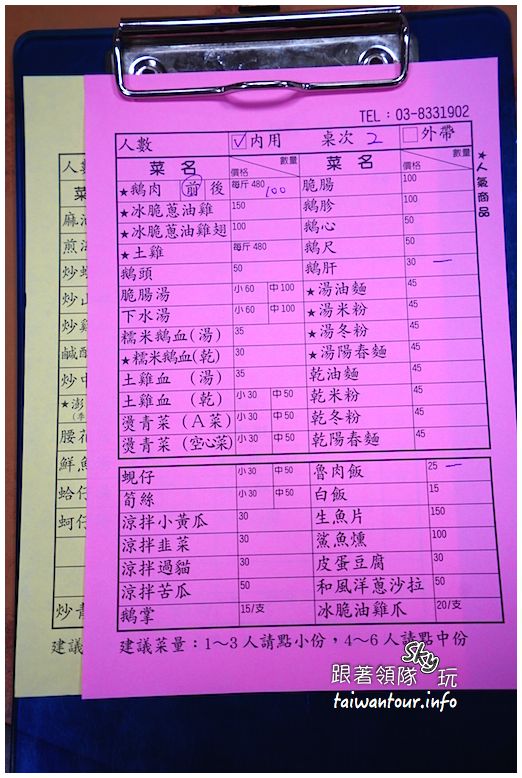 TEL：03-8331902
人數 ✓內用 桌次 2 □外帶
菜名 價格 數量 菜名 價格 數量
★人氣商品
★鵝肉 前 後 每斤 480 100 脆腸 100
★冰脆蔥油雞 150 鵝胗 100
★冰脆蔥油雞翅 100 鵝心 50
★土雞 每斤 480 鵝尺 50
鵝頭 50 鵝肝 30 一
脆腸湯 小 60 中 100 ★湯油麵 45
下水湯 小 60 中 100 ★湯米粉 45
糯米鵝血(湯) 35 ★湯冬粉 45
★糯米鵝血(乾) 30 ★湯陽春麵 45
土雞血 (湯) 35 乾油麵 45
土雞血 (乾) 小 30 中 50 乾米粉 45
燙青菜 (A菜) 小 30 中 50 乾冬粉 45
燙青菜 (空心菜) 小 30 中 50 乾陽春麵 45
蜆仔 小 30 中 50 魯肉飯 25 一
筍絲 小 30 中 50 白飯 15
涼拌小黃瓜 30 生魚片 150
涼拌韭菜 30 鯊魚燻 100
涼拌過貓 30 皮蛋豆腐 30
涼拌苦瓜 50 和風洋蔥沙拉 50
鵝掌 15/支 冰脆油雞爪 20/支
建議菜量：1～3 人請點小份，4～6 人請點中份
人數
菜
麻油
煎
炒
炒山
炒雞
鹹
炒中
★澎
腰花
鮮魚
蛤仔
蚵仔
炒青
建議
跟著領隊 sky 玩
taiwantour.info